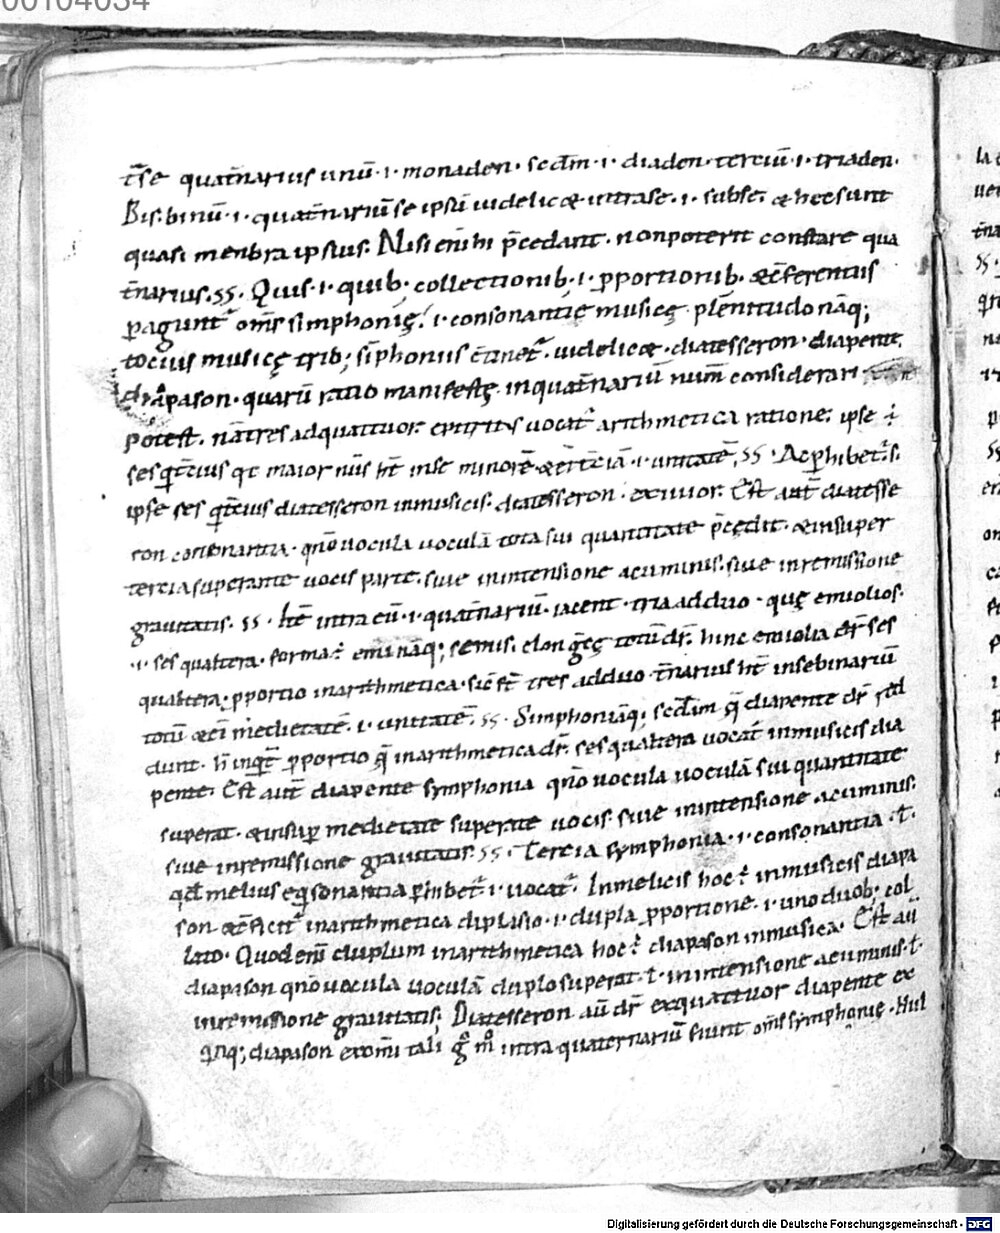 00104034
t̄se quat̄narius unū · i · monaden · secd̄m · i · diaden · terciū · i · triaden ·
Bis · binū · i · quat̄nariū se ipsū uidelic& intra se · i · subse · & hec sunt
quasi menbra ipsius · Nisi eni hi p̄cedant · non poterit constare qua
t̄narius · ss · Quis · i · quib · collectionib · i · pportionib · & c̄ferentiis
pagunt om̄s simphonię · i · consonantię musicę plenitudo nāq;
tocius musicę trib; sīphoniis c̄tinet̄ · uidelic& · diatesseron · diapente,
diapason · quarū ratio manifeste in quat̄nariū num̄ considerari
potest · nā tres ad quattuor epitritus uocat̄ arithmetica ratione, ipse ÷
sesq̄tcius qt maior nūs ht̄ in se minorē & ei t̄ciā · i · unitatē, ss · Ac phibet̄ · s ·
ipse sesq̄tcius diatesseron in musicis · diatesseron · ex iuor · Est aut̄ diatesse
ron consonantia · qn̄o uocula uoculā tota sui quantitate p̄cędit · & insuper
tercia superante uocis parte · siue in intensione acuminis · siue in remissione
grauitatis · ss · ht̄ intra eū · i · quat̄nariū · iacent · tria ad duo · quę emiolios ·
· i · sesqualtera · format̄ emi nāq; semis · elon gēç totū dr̄ · hinc emiolia dr̄ ses
qualtera · pportio in arithmetica · sic st̄ tres ad duo · t̄narius ht̄ in se binariū
totū & ei medietatē · i · unitatē · ss · Simphoniāq; secd̄am q̄ diapente dr̄ red
dunt · h̄ inq̄t pportio q̄ in arithmetica dr̄ · sesqualtera uocat̄ in musicis dia
pente · Est aut̄ diapente symphonia qn̄o uocula uoculā sui quantitate
superat · & insup medietate superate uocis · siue in intensione acuminis ·
siue in remissione grauitatis · ss · Tercia symphonia · i · consonantia · t̄ ·
qd̄ melius eq̄sonantia phibet̄ · i · uocat̄ · In melicis hoc ÷ in musicis diapa
son & efficit̄ in arithmetica diplasio · i · dupla pportione · i · uno duob; col
lato · Quod eni duplum in arithmetica hoc ÷ diapason in musica · Est aū
diapason qn̄o uocula uoculā duplo superat · t̄ · in intensione acuminis · t̄ ·
in remissione grauitatis, Diatesseron aū dr̄ ex quattuor diapente ex
qnq; diapason ex omi tali g̊ m̊ intra quaternariū fiunt om̄s symphonię · Nul
Digitalisierung gefördert durch die Deutsche Forschungsgemeinschaft - DFG